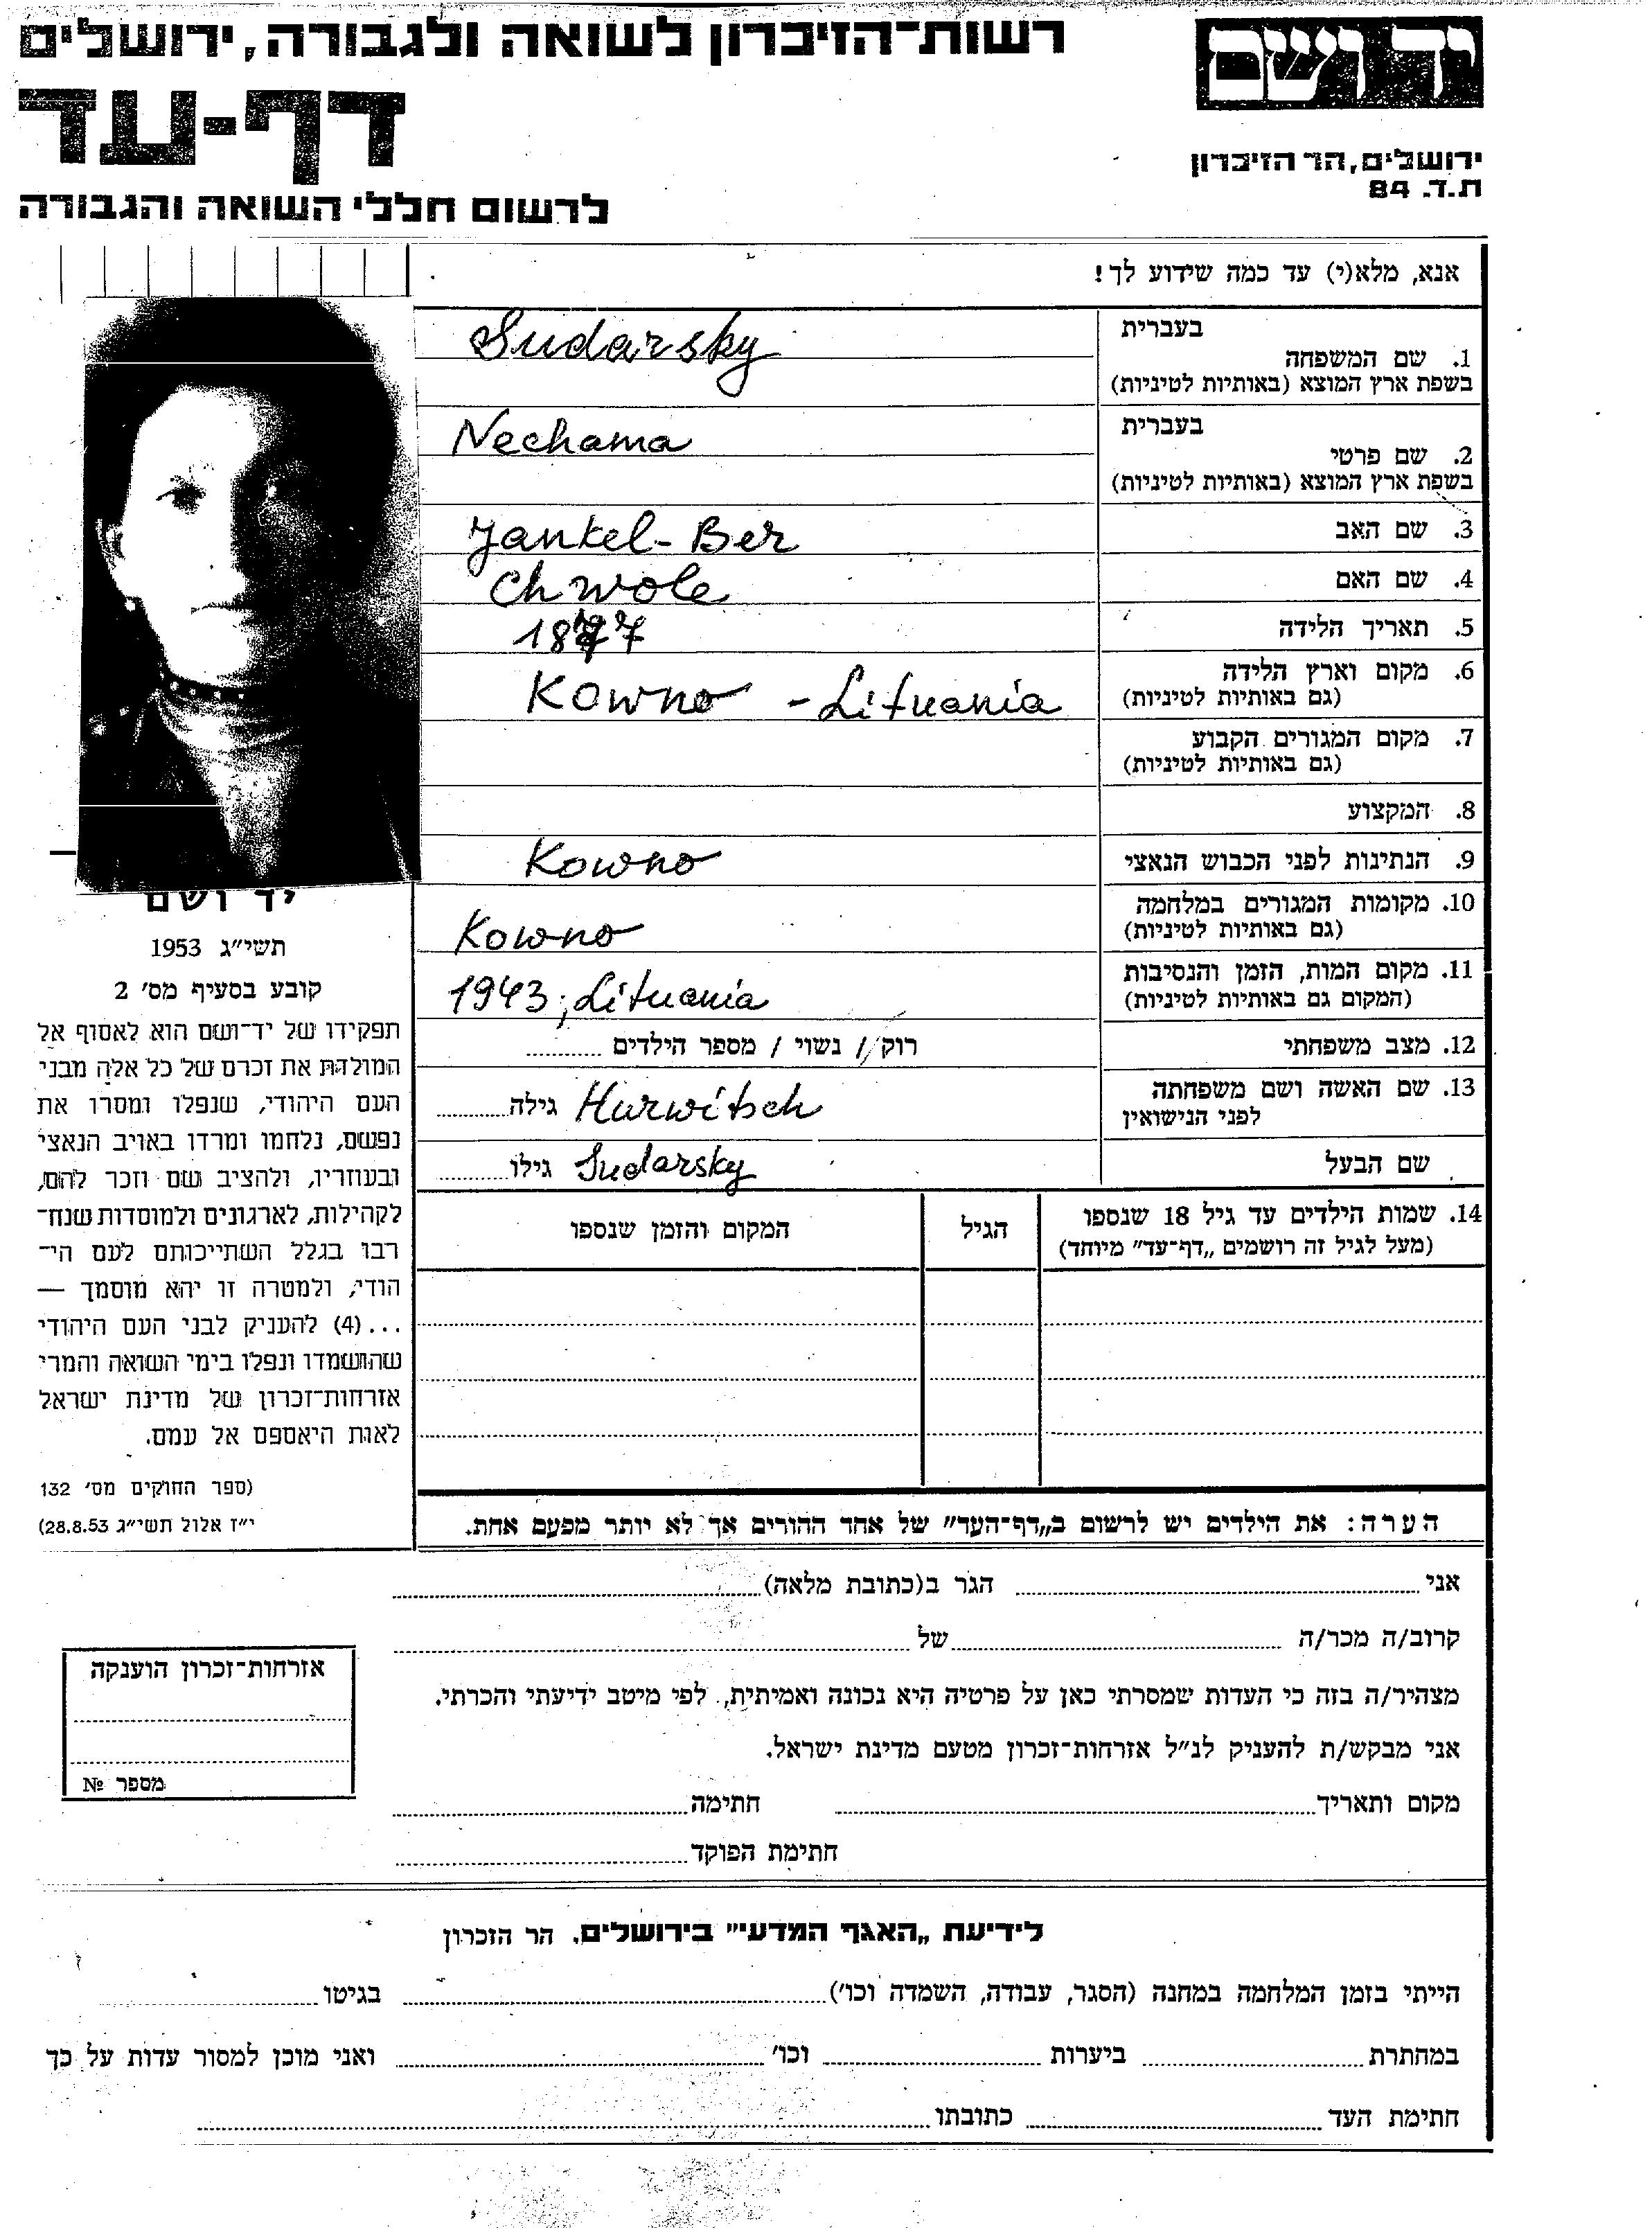 רשות־הזיכרון לשואה ולגבורה, ירושלים
יד ושם
דף-עד
ירושלים, הר הזיכרון
ת.ד. 84
לרשום חללי השואה והגבורה
אנא, מלא(י) עד כמה שידוע לך!
בעברית
1. שם המשפחה
Sudarsky
בשפת ארץ המוצא (באותיות לטיניות)
בעברית
2. שם פרטי
Nechama
בשפת ארץ המוצא (באותיות לטיניות)
3. שם האב Jankel-Ber
4. שם האם Chwole
5. תאריך הלידה 1877
6. מקום וארץ הלידה Kowno - Lituania
(גם באותיות לטיניות)
7. מקום המגורים הקבוע
(גם באותיות לטיניות)
8. המקצוע
9. הנתינות לפני הכבוש הנאצי Kowno
10. מקומות המגורים במלחמה Kowno
(גם באותיות לטיניות)
11. מקום המות, הזמן והנסיבות 1943; Lituania
(המקום גם באותיות לטיניות)
12. מצב משפחתי רוק / נשוי / מספר הילדים
13. שם האשה ושם משפחתה Hurwitsch גילה
לפני הנישואין
שם הבעל Sudarsky גילו
14. שמות הילדים עד גיל 18 שנספו הגיל המקום והזמן שנספו
(מעל לגיל זה רושמים „דף־עד” מיוחד)
הערה: את הילדים יש לרשום ב„דף־העד” של אחד ההורים אך לא יותר מפעם אחת.
יד ושם
תשי״ג 1953
קובע בסעיף מס׳ 2
תפקידו של יד־ושם הוא לאסוף אל
המולדת את זכרם של כל אלה מבני
העם היהודי, שנפלו ומסרו את
נפשם, נלחמו ומרדו באויב הנאצי
ובעוזריו, ולהציב שם וזכר להם,
לקהילות, לארגונים ולמוסדות שנח־
רבו בגלל השתייכותם לעם הי־
הודי, ולמטרה זו יהא מוסמך —
...(4) להעניק לבני העם היהודי
שהושמדו ונפלו בימי השואה והמרי
אזרחות־זכרון של מדינת ישראל
לאות היאספם אל עמם.
(ספר החוקים מס׳ 132
י״ז אלול תשי״ג 28.8.53)
אני הגר ב(כתובת מלאה)
קרוב/ה מכר/ה של
מצהיר/ה בזה כי העדות שמסרתי כאן על פרטיה היא נכונה ואמיתית, לפי מיטב ידיעתי והכרתי.
אני מבקש/ת להעניק לנ״ל אזרחות־זכרון מטעם מדינת ישראל.
מקום ותאריך חתימה
חתימת הפוקד
אזרחות־זכרון הוענקה
מספר №
לידיעת „האגף המדעי” בירושלים. הר הזכרון
הייתי בזמן המלחמה במחנה (הסגר, עבודה, השמדה וכו׳) בגיטו
במחתרת ביערות וכו׳ ואני מוכן למסור עדות על כך
חתימת העד כתובתו